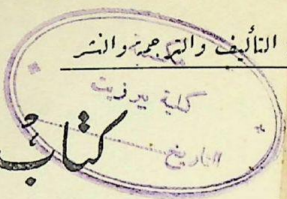 التأليف والترجمة والنشر
مكتبة
كلية بيرزيت
التاريخ
كتاب